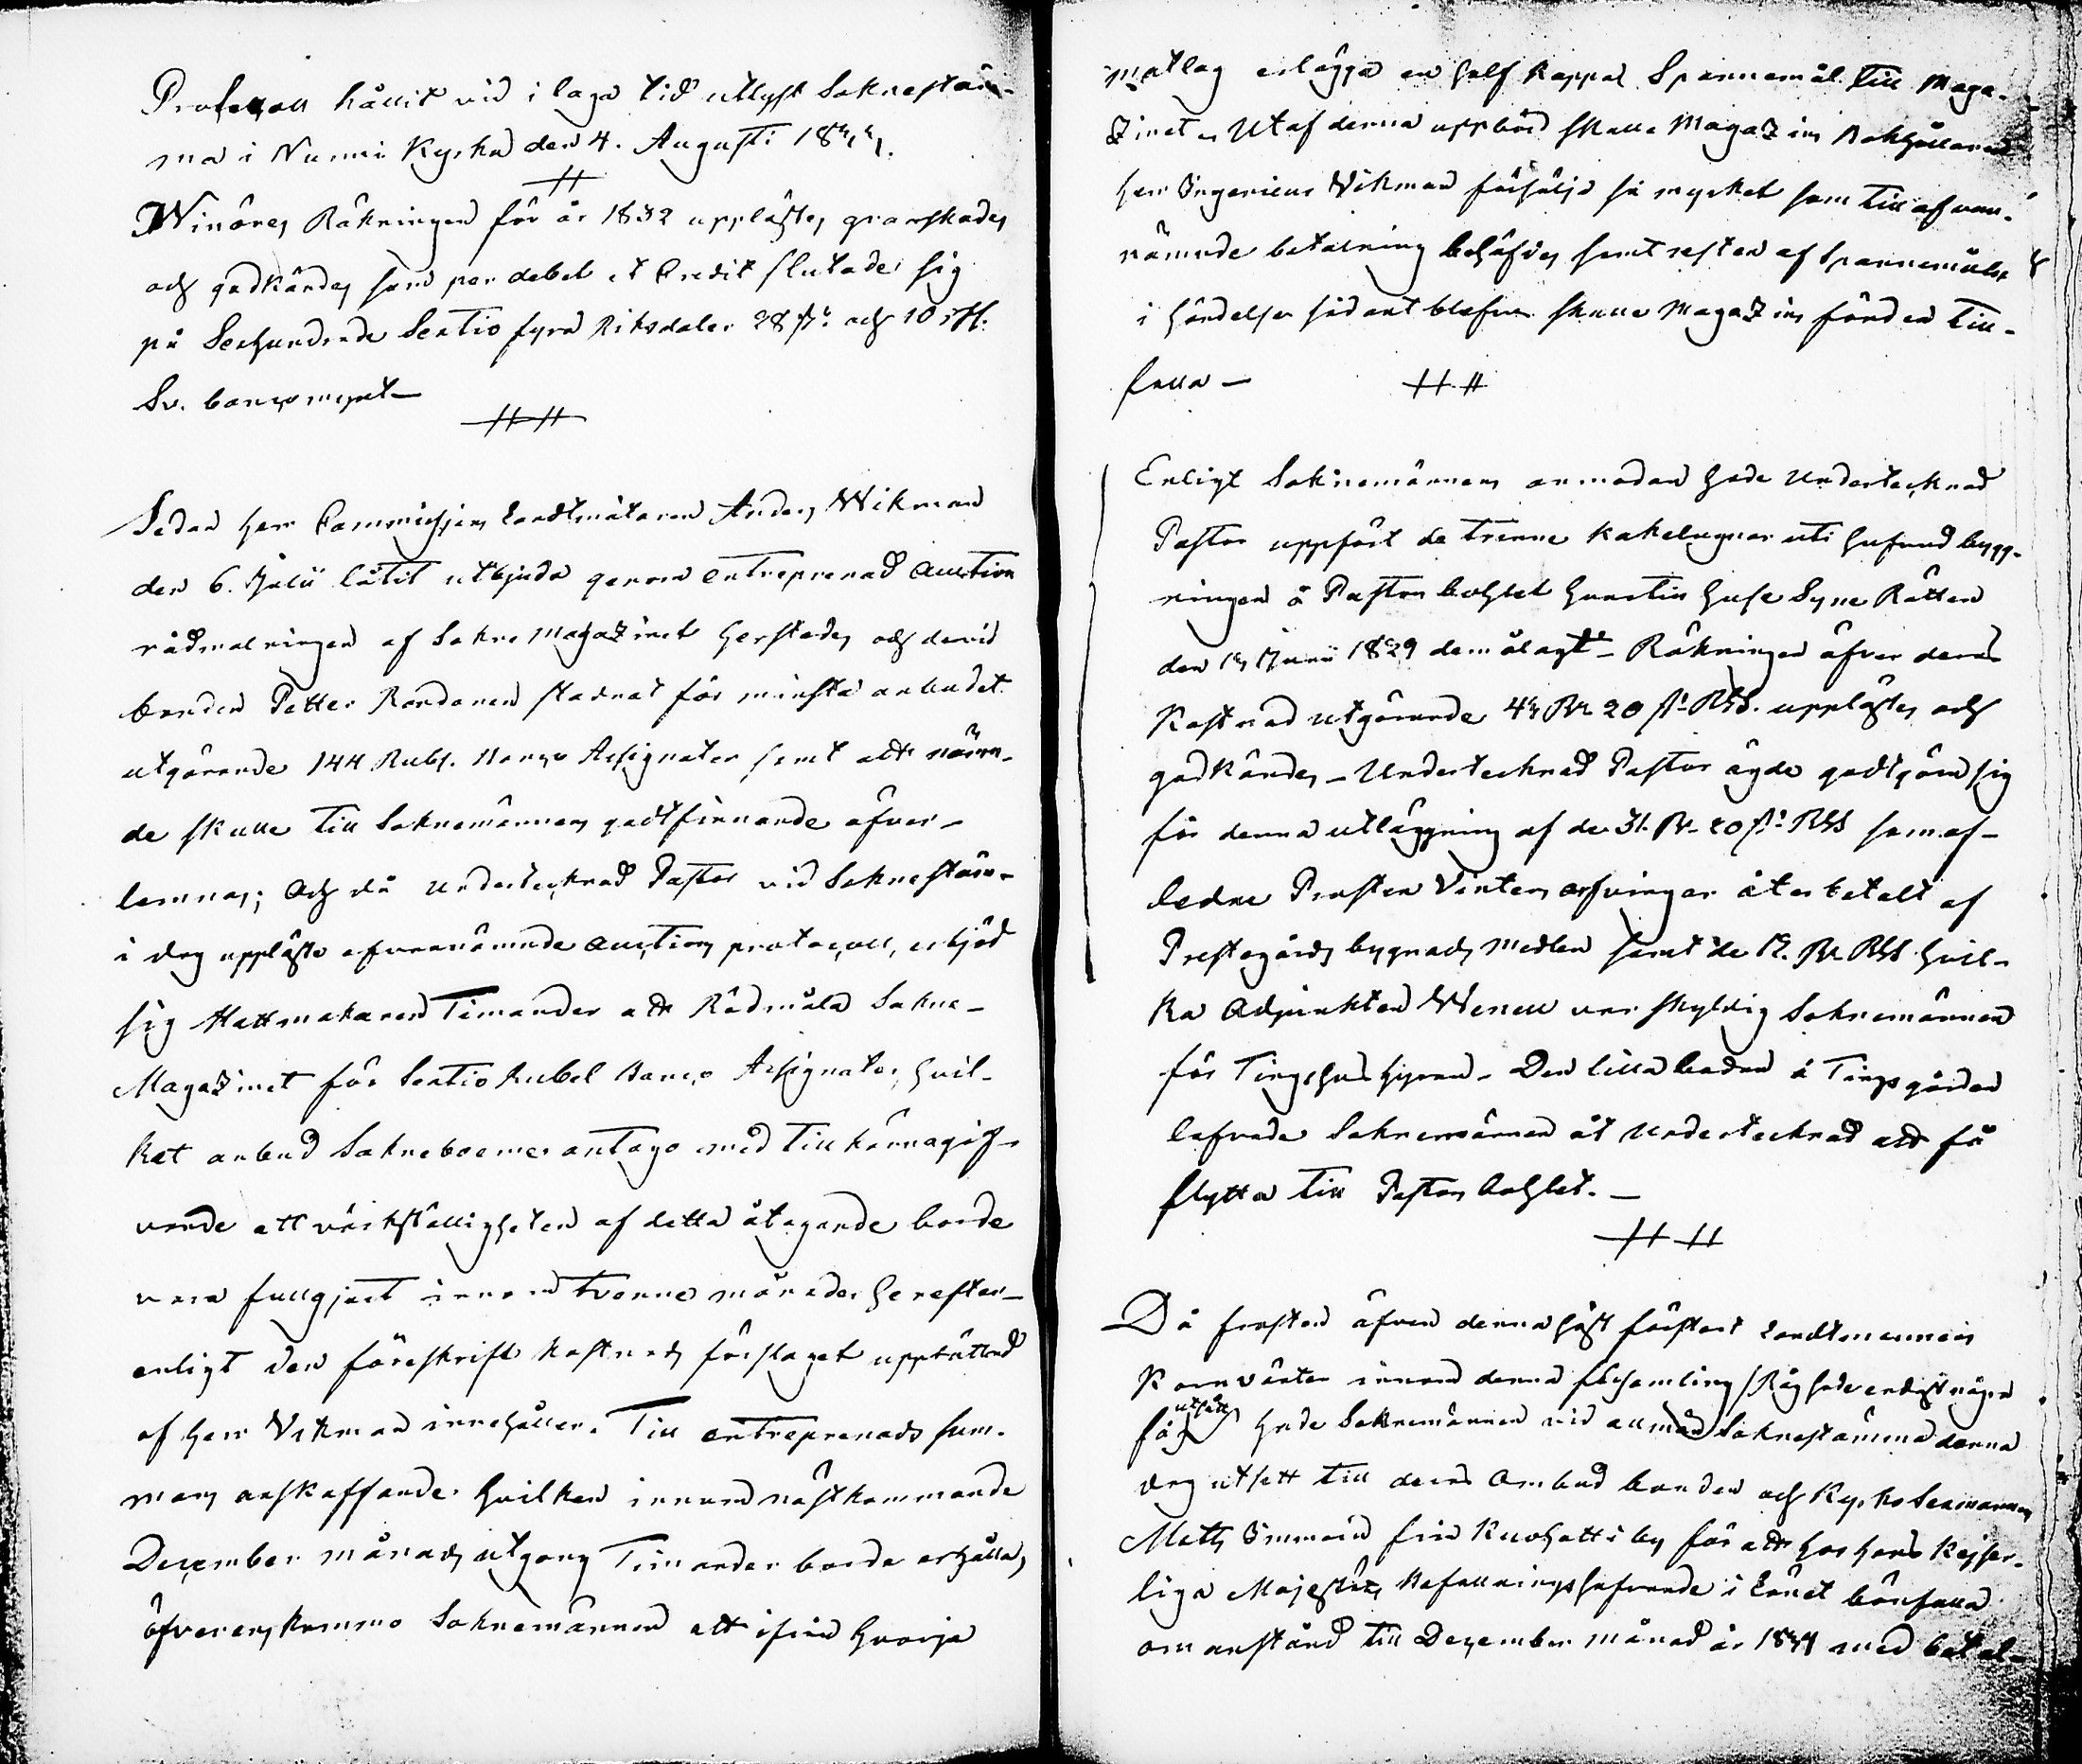 Protocoll hållit vid i laga tid utlyst Soknestäm-
ma i Nurmi Kyrka den 4. Augusti 1833.
Winöres Räkningen för år 1832 upplästes, granskades
och godkändes som per debet et Credit slutade sig
på Sexhundrade Sextio fyra Riksdaler 28 s. och 10 rst.
Sv. banco mynt —
Sedan Herr Commissions Landtmätaren Anders Wikman
den 6. Julii låtit utbjuda genom Entreprenad Auction
rådmalningen af Sokne Magazinet härstädes och dervid
bonden Petter Rondanen stadnat för minsta anbudet
utgörande 144 Rubl. Banco Assignater samt att näm-
de skulle till Soknemännens godtfinnande öfver-
lemnas; Och då Undertecknad Pastor vid Soknestäm
i dag uppläste ofvannämnde Auctions protocoll, erbjöd
sig Hattmakaren Timander att Rödmåla Sokne-
Magazinet för Sextio Rubel Banco Assignater, hvil-
ket anbud Sokneboerne antogo med tillkännagif-
vande att värkställigheten af detta åtagande borde
vara fullgjort innom tvenne månader härefter
enligt den föreskrift kostnads förslaget upprättad
af Herr Vikman innehåller. Till entreprenads sum-
mans anskaffande hvilken innom nästkommande
December månads utgång Timander borde erhålla,
öfverenskommo Soknemännen att ifrån hvarje
matlag erlägga en half kappa Spannemål till Maga-
zinet. Utaf denna uppbörd skulle Magazins Bokhållaren
Herr Ingenieur Vikman försälja så mycket som till ofvan-
nämnde betalning behöfves samt resten af Spannemålen
i händelse sådant blefve skulle Magazins fonden till-
falla —
Enligt Soknemännens anmodan hade Undertecknad
Pastor uppfört de trenne kakelugnar uti hufvud bygg-
ningen å Pastors bohlet hvartill Huse Syne Rätten
den 13 Junii 1829 dem ålagt — Räkningen öfver deras
Kostnad utgörande 43 Rr 20 s. RGS. upplästes och
godkändes — Undertecknad Pastor ägde godtgöra sig
för denna utläggning af de 31. Rr. 20 s. RGS som af-
ledne Prosten Winters arfvingar återbetalt af
Prestegårds bygnads Medlen samt de 12. Rr. RGS hvil-
ka Adjunkten Wenell var skyldig Soknemännen
för Tingshus hyran — Den lilla boden å Tingsgården
lofvade Soknemännen åt Undertecknad att få
flytta till Pastors bohlet. —
Då frosten äfven denna höst förstört Landtmannens
Kornväxter innom denna församling /: Råg hade endast några
få utsått :/ hade Soknemännen vid allmän Soknestämma denna
dag utsett till deras Ombud bonden och Kyrko Sexmannen
Matts Immoin från Kuohatti by för att hos Hans Kejser-
liga Majestäts Befallningshafvande i Länet bönfalla
om anstånd till December månad år 1834 med betal-